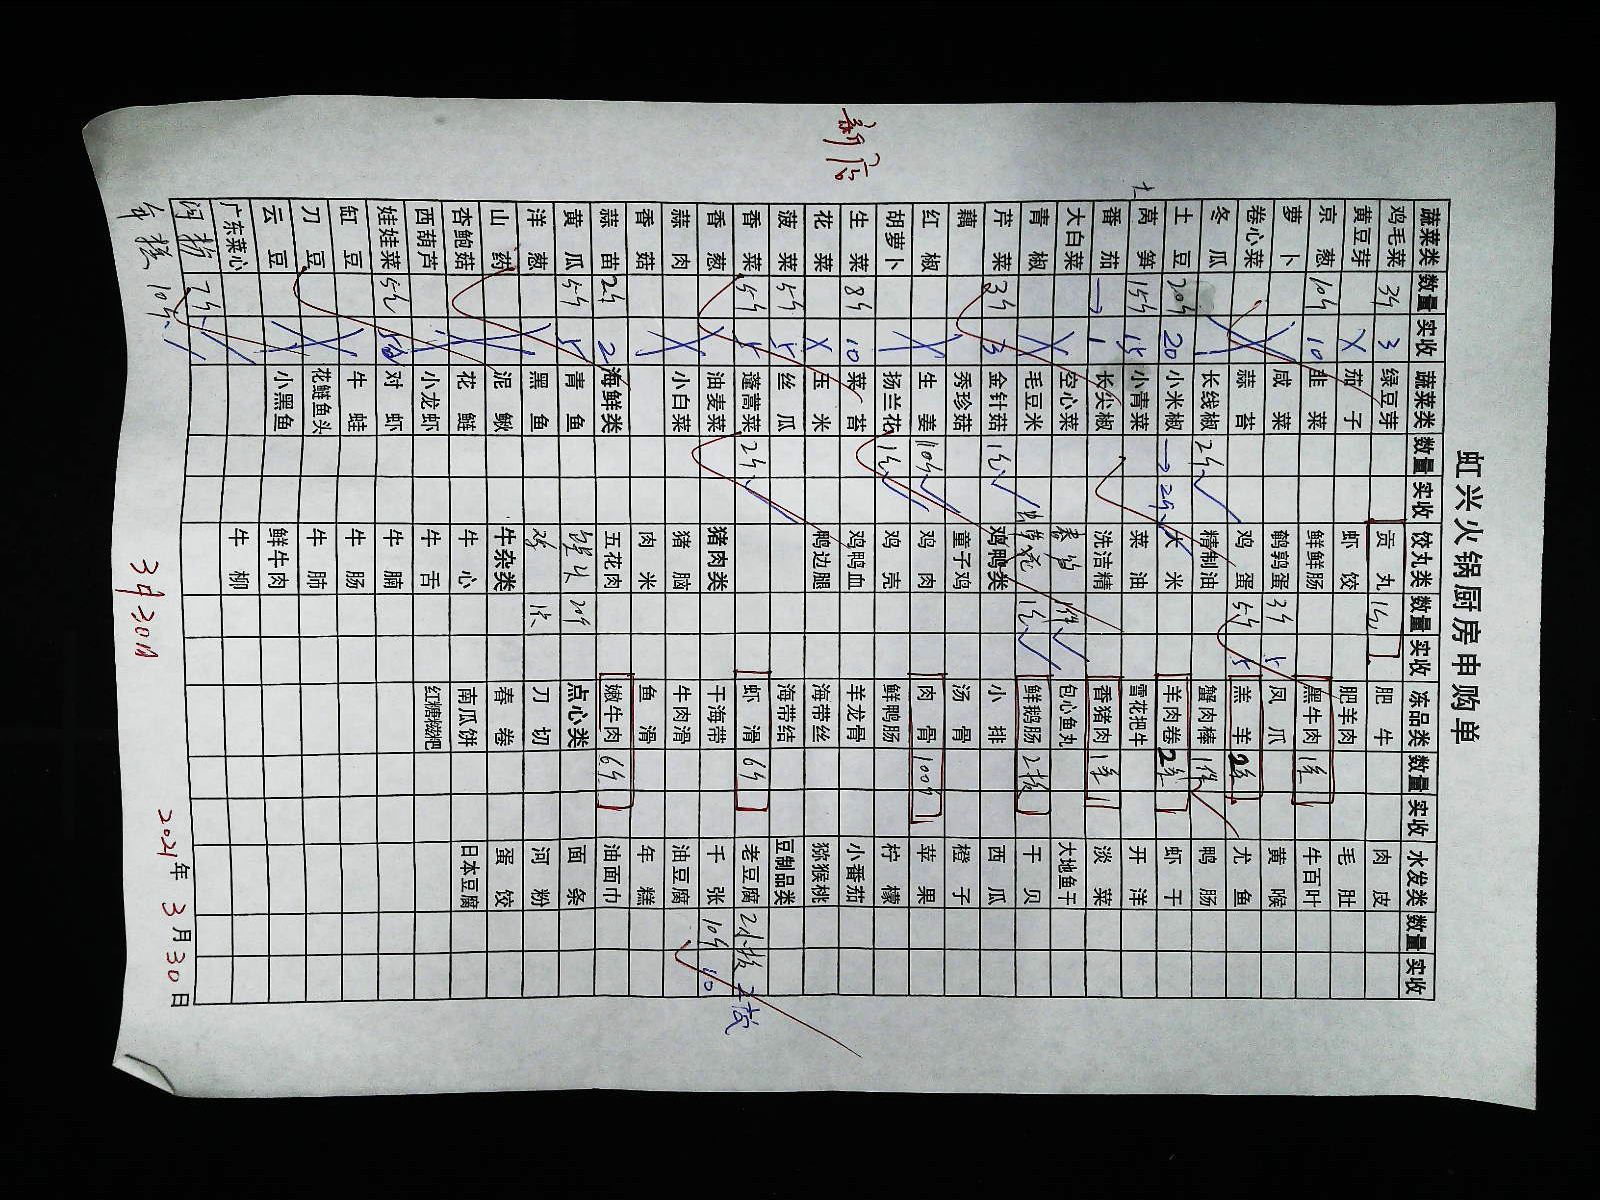 虹兴火锅厨房申购单
新店
蔬菜类 数量 实收 蔬菜类 数量 实收 饺丸类 数量 实收 冻品类 数量 实收 水发类 数量 实收
鸡毛菜 3斤 3 绿豆芽 贡丸 1包 肥牛 肉皮
黄豆芽 茄子 虾饺 肥羊肉 毛肚
京葱 10斤 10 韭菜 鲜鲜肠 黑牛肉 1条 牛百叶
萝卜 咸菜 鹌鹑蛋 3斤 5 凤爪 黄喉
卷心菜 蒜苔 鸡蛋 5斤 5 羔羊 2条 尤鱼
冬瓜 长线椒 2斤 精制油 蟹肉棒 1件 鸭肠
土豆 20斤 20 小米椒 → 2斤 大米 羊肉卷 2条 虾干
莴笋 15斤 15 小青菜 菜油 雪花把牛 开洋
番茄 → 1 长尖椒 洗洁精 香猪肉 1条 淡菜
大白菜 空心菜 1件 包心鱼丸 大地鱼干
青椒 毛豆米 1包 鲜鹅肠 2板 干贝
芹菜 3斤 3 金针菇 1包 鸡鸭类 小排 西瓜
藕 秀珍菇 童子鸡 汤骨 橙子
红椒 生姜 10斤 鸡肉 肉骨 100斤 苹果
胡萝卜 扬兰花 1包 鸡壳 鲜鸭肠 柠檬
生菜 8斤 10 菜苔 鸡鸭血 羊龙骨 小番茄
花菜 玉米 鸭边腿 海带丝 猕猴桃
菠菜 5斤 5 丝瓜 海带结 豆制品类
香菜 5斤 5 蓬蒿菜 2斤 虾滑 6斤 老豆腐 2小板 2板
香葱 油麦菜 猪肉类 干海带 千张 10斤 10
蒜肉 小白菜 猪脑 牛肉滑 油豆腐
香菇 肉米 鱼滑 年糕
蒜苗 2斤 2 海鲜类 五花肉 嫩牛肉 6斤 油面巾
黄瓜 5斤 5 青鱼 点心类 面条
洋葱 黑鱼 刀切 河粉
山药 泥鳅 牛杂类 春卷 蛋饺
杏鲍菇 花鲢 牛心 南瓜饼 日本豆腐
西葫芦 小龙虾 牛舌 红糖糍粑
娃娃菜 5包 对虾 牛腩
缸豆 牛蛙 牛肠
刀豆 花鲢鱼头 牛肺
云豆 小黑鱼 鲜牛肉
广东菜心 牛柳
7斤
10斤
3月30日
2021年3月30日